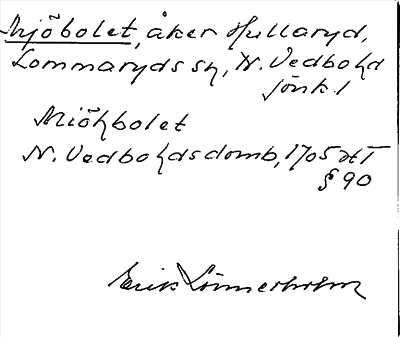 Mjöbolet, åker Hullaryd,
Lommaryds sn, N. Vedbo hd
Jönk. l
Miöhbolet
N. Vedbohdsdomb, 1705 ht
§ 90
Erik Lönnerholm